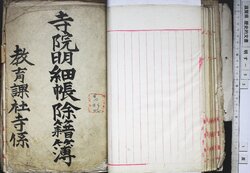 寺院明細帳除籍簿
教育課社寺係